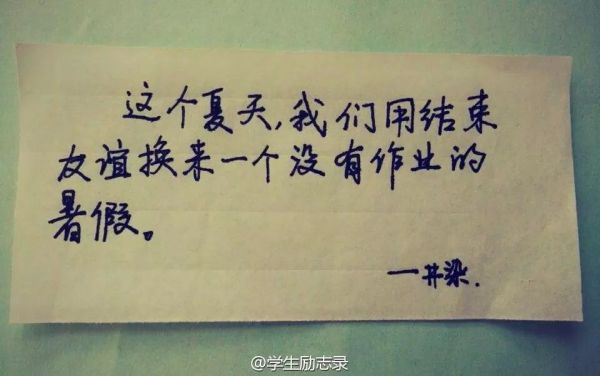 这个夏天,我们用结束
友谊换来一个没有作业的
暑假。
一井染.
@学生励志录